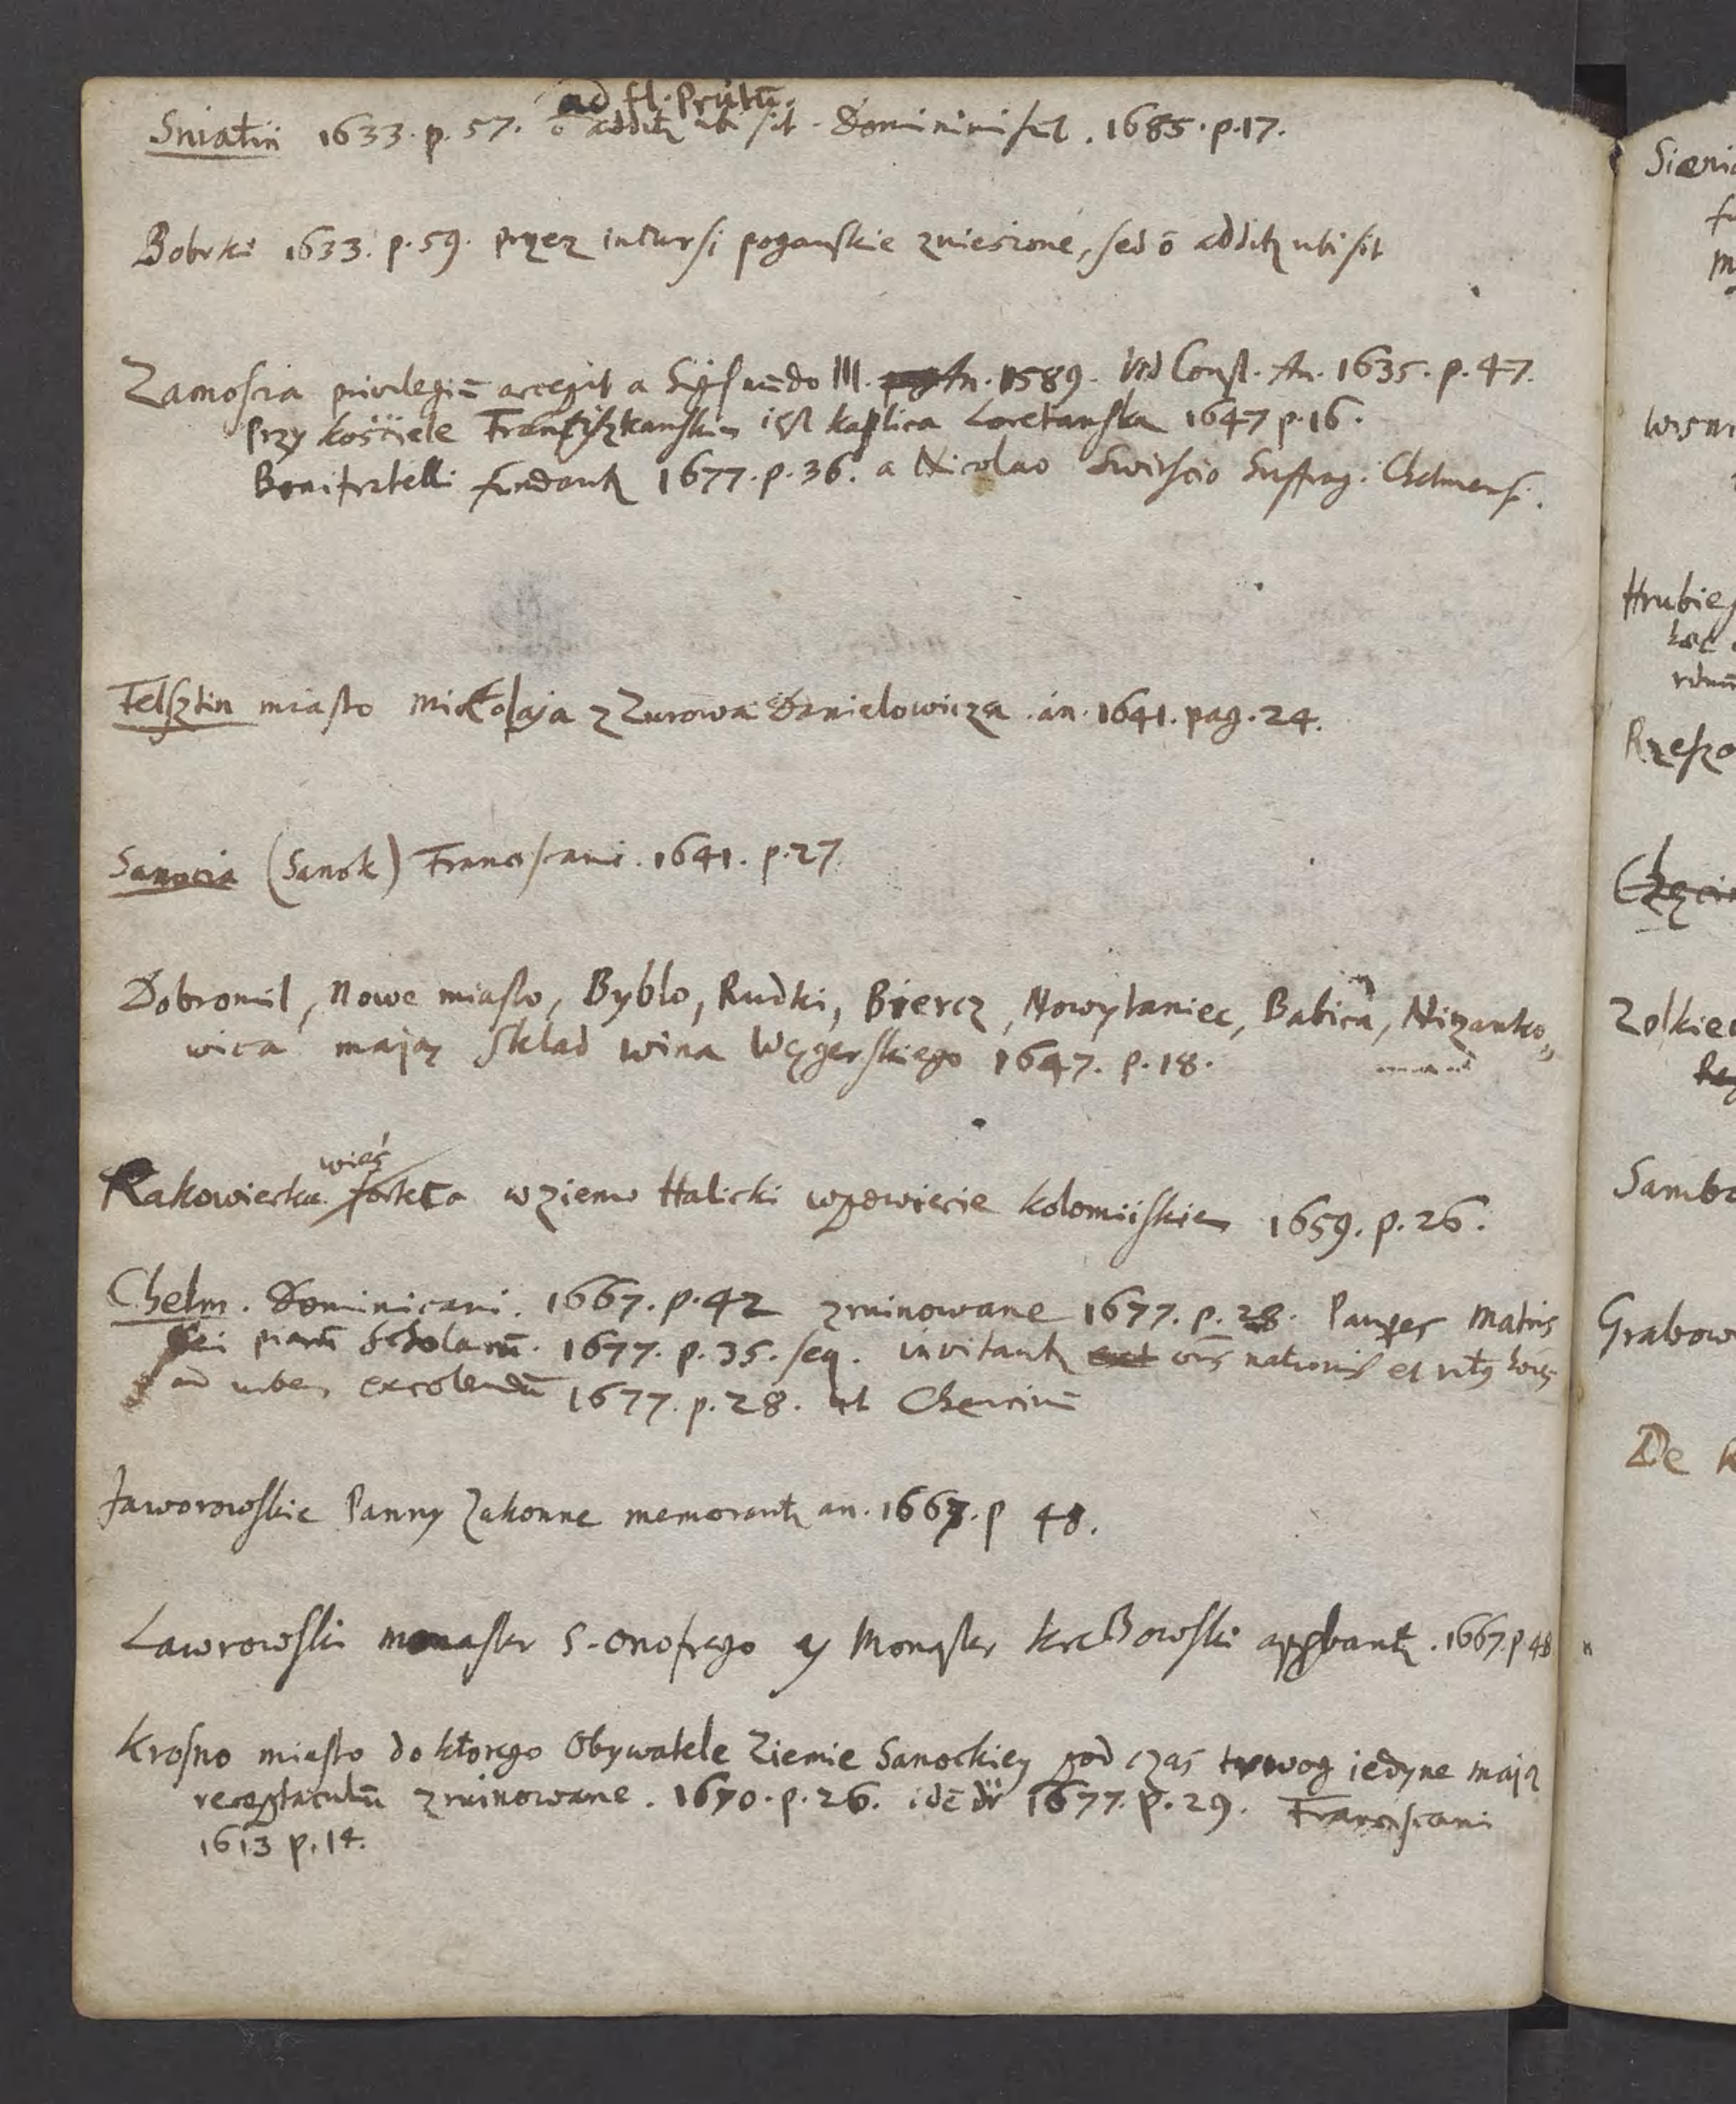 ad fl. Prutū.
Sniatin 1633. p. 57. ō additz ubi sit. Dominici sūt. 1685. p. 17.
Bobrki 1633. p. 59. przez incursi poganskie zniesione, sed ō additz ubi sit
Zamoscia privilegiū accepit a Sigismūdo III. An. 1589. vid Const. An. 1635. p. 47.
Przy kosciele Franciszkanskim iest kaplica Loretanska 1647 p. 16.
Bonifratelli fundantz 1677. p. 36. a Nicolao Swirscio Suffrag. Chelmens.
Felsztin miasto Mikolaja z Zurowa Danielowicza. an. 1641. pag. 24.
Sanocia (Sanok) Franciscani. 1641. p. 27.
Dobromil, Nowe miasto, Byblo, Rudki, Biercz, Nowytaniec, Babica, Nizanko,,
wica mają sklad wina Węgerskiego 1647. p. 18.
wieś
Rakowiecka forteca w ziemi Halicki w powiecie kolomiiskiem 1659. p. 26.
Chelm. Dominicani. 1667. p. 42 zruinowane 1677. p. 28. Pauper Matris
Dei piarū Scholarū. 1677. p. 35. seq. invitantz nationis et
ad urbem excolendū 1677. p. 28. ut Chencinū
Jaworowskie Panny Zakonne memorantz an. 1667. p 48.
Lawrowski monaster S. Onofrego y Monaster appbantz. 1667. p 48
Krosno miasto do ktorego Obywatele Ziemie Sanockiey pod czas trwog iedyne mają
receptaculū zruinowane. 1670. p. 26. idē dr 1677. p. 29. Franciscani
1613 p. 14.
Sienia
Hrubies
Rzeszo
Zolkiew
Sambo
Grabow
De